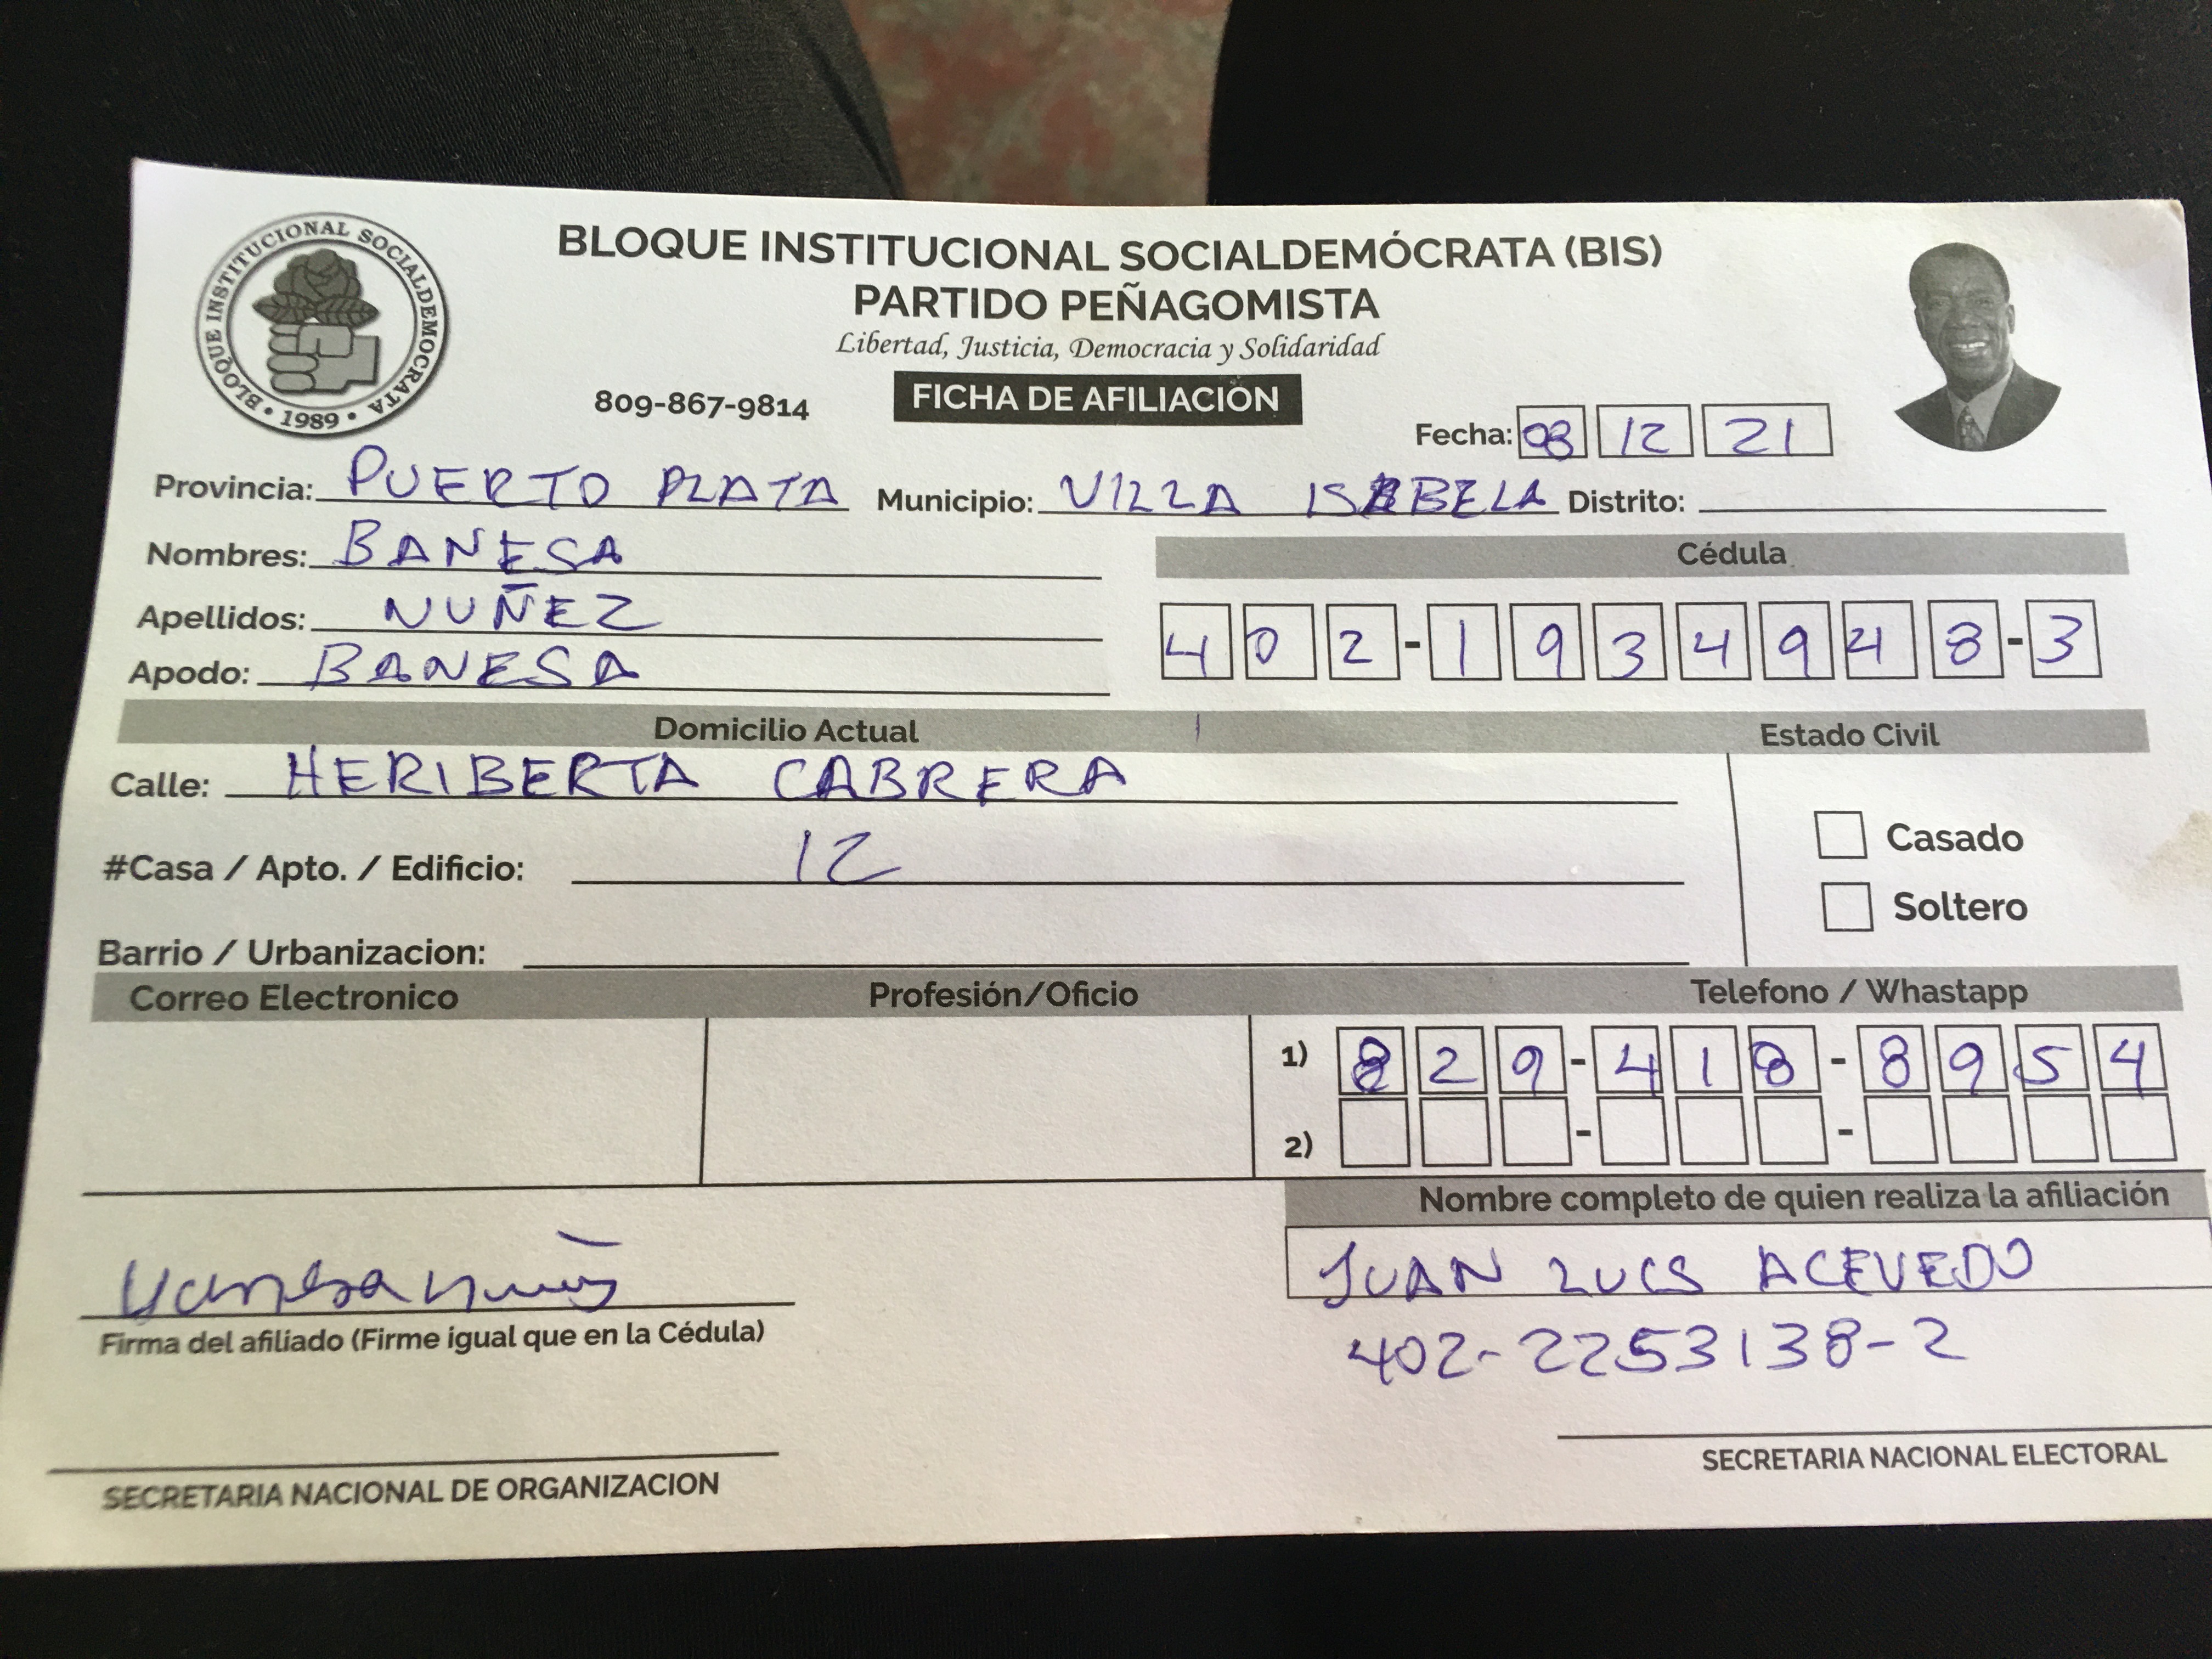 BLOQUE INSTITUCIONAL SOCIALDEMOCRATA • 1989 •
BLOQUE INSTITUCIONAL SOCIALDEMÓCRATA (BIS)
PARTIDO PEÑAGOMISTA
Libertad, Justicia, Democracia y Solidaridad
809-867-9814 FICHA DE AFILIACIÓN
Fecha: 08 12 21
Provincia: PUERTO PLATA Municipio: VILLA ISABELA Distrito:
Nombres: BANESA
Cédula
Apellidos: NUÑEZ
402-1934948-3
Apodo: BANESA
Domicilio Actual Estado Civil
Calle: HERIBERTA CABRERA
Casado
#Casa / Apto. / Edificio: 12
Soltero
Barrio / Urbanizacion:
Correo Electronico Profesión/Oficio Telefono / Whastapp
1) 829-418-8954
2) - -
Nombre completo de quien realiza la afiliación
JUAN LUCS ACEVEDO
Vanesa nuñ
Firma del afiliado (Firme igual que en la Cédula)
402-2253138-2
SECRETARIA NACIONAL DE ORGANIZACION
SECRETARIA NACIONAL ELECTORAL